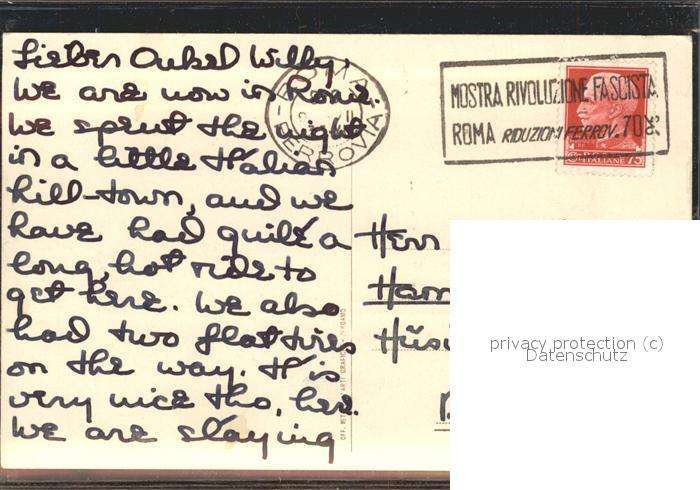 Lieber Onkel Willy,
We are now in Rome.
We spent the night
in a little Italian
hill-town, and we
have had quite a
long, hot ride to
get here. We also
had two flat tires
on the way. It is
very nice tho, here.
We are staying
ROMA
FERROVIA
MOSTRA RIVOLUZIONE FASCISTA
ROMA RIDUZIONI FERROV. 70%
ITALIANE 75
Herr
Ham
Hüsi
privacy protection (c)
Datenschutz